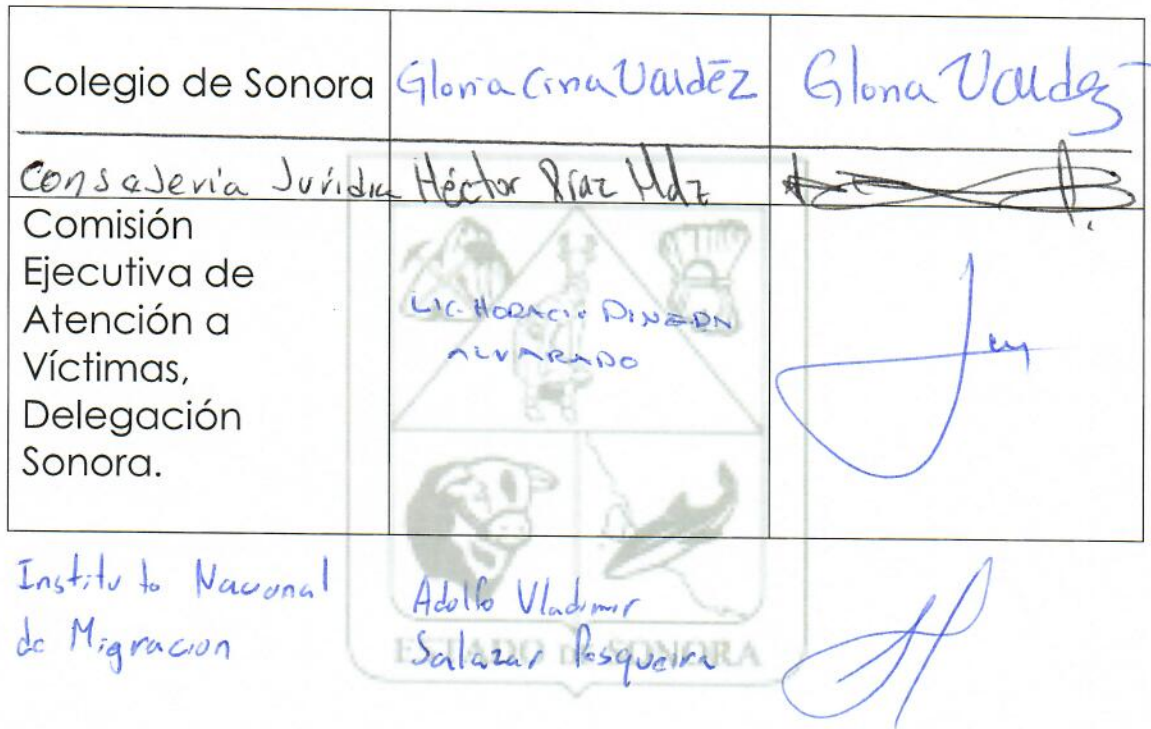 Colegio de Sonora Gloria Cina Valdéz Gloria Valdez
Consejeria Juridica Héctor Díaz Mdz
Comisión
Ejecutiva de
Atención a
Víctimas,
Delegación
Sonora.
LIC. HORACIO PINEDA
ALVARADO
Instituto Nacional
de Migracion
Adolfo Vladimir
Salazar Pesqueira
ESTADO DE SONORA